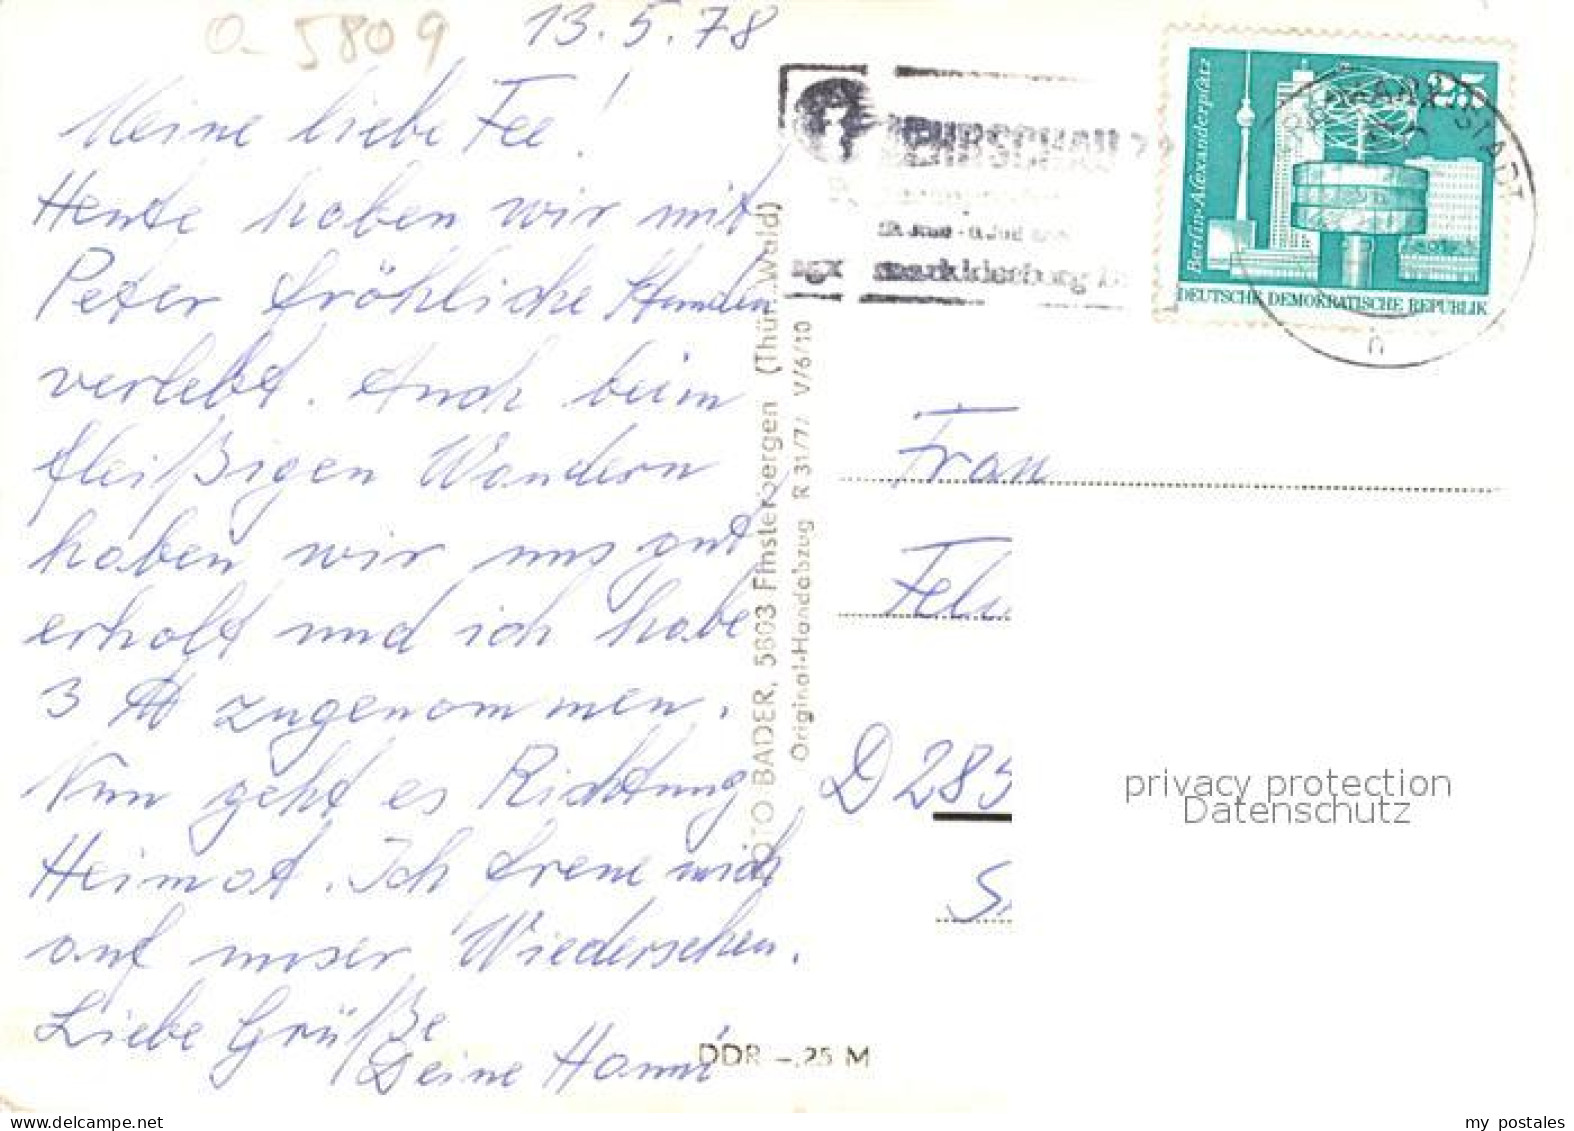 a 5809
13.5.78
Meine liebe Fee!
Heute haben wir mit
Peter fröhliche Stunden
verlebt. Auch beim
fleißigen Wandern
haben wir uns gut
erholt und ich habe
3 ℔ zugenommen.
Nun geht es Richtung
Heimat. Ich freue mich
auf unser Wiedersehen.
Liebe Grüße
Deine Hanni
FOTO BADER, 5803 Finsterbergen (Thür. Wald)
Original-Handabzug R 31/77 V/6/10
DDR -,25 M
Berlin-Alexanderplatz
25
DEUTSCHE DEMOKRATISCHE REPUBLIK
STADT
h
Frau
D 285
privacy protection
Datenschutz
my postales
www.delcampe.net